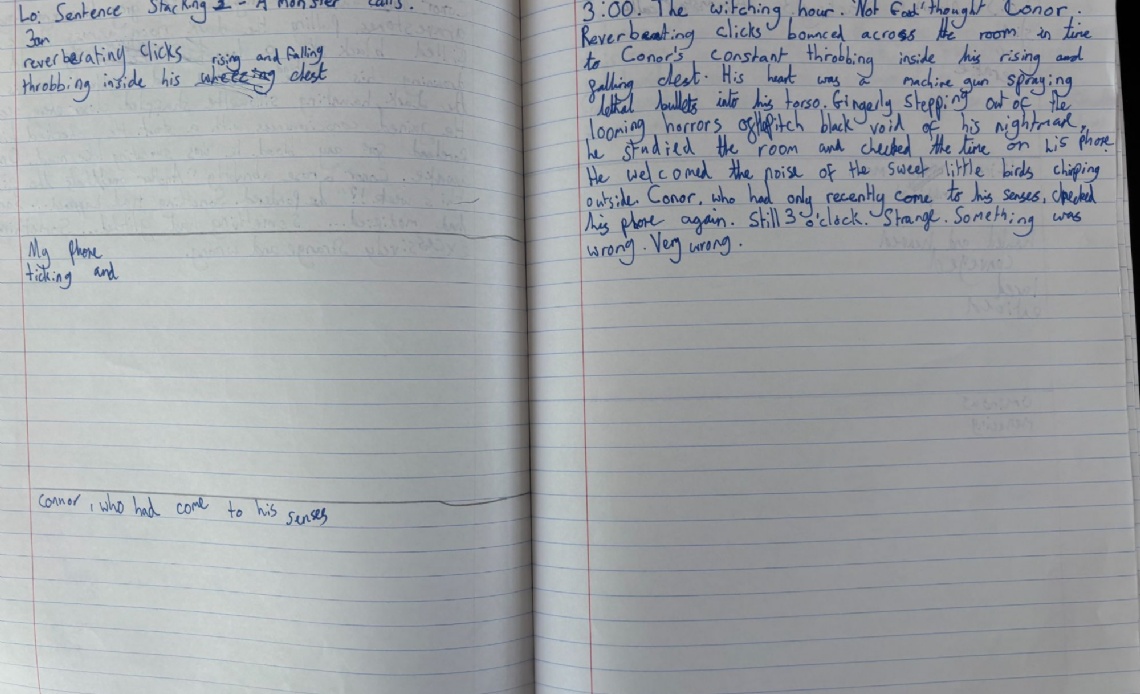 Lo: Sentence Stacking 2 - A monster calls.
3am
reverberating clicks
rising and falling
throbbing inside his wheezing chest
My phone
ticking and
Connor, who had come to his senses
3:00. The witching hour. 'Not Good' thought Conor.
Reverberating clicks bounced across the room in time
to Conor's constant throbbing inside his rising and
falling chest. His heart was a machine gun spraying
lethal bullets into his torso. Gingerly stepping out of the
looming horrors of the pitch black void of his nightmare,
he studied the room and checked the time on his phone
He welcomed the noise of the sweet little birds chirping
outside. Conor, who had only recently come to his senses, checked
his phone again. Still 3 o'clock. Strange. Something was
wrong. Very wrong.